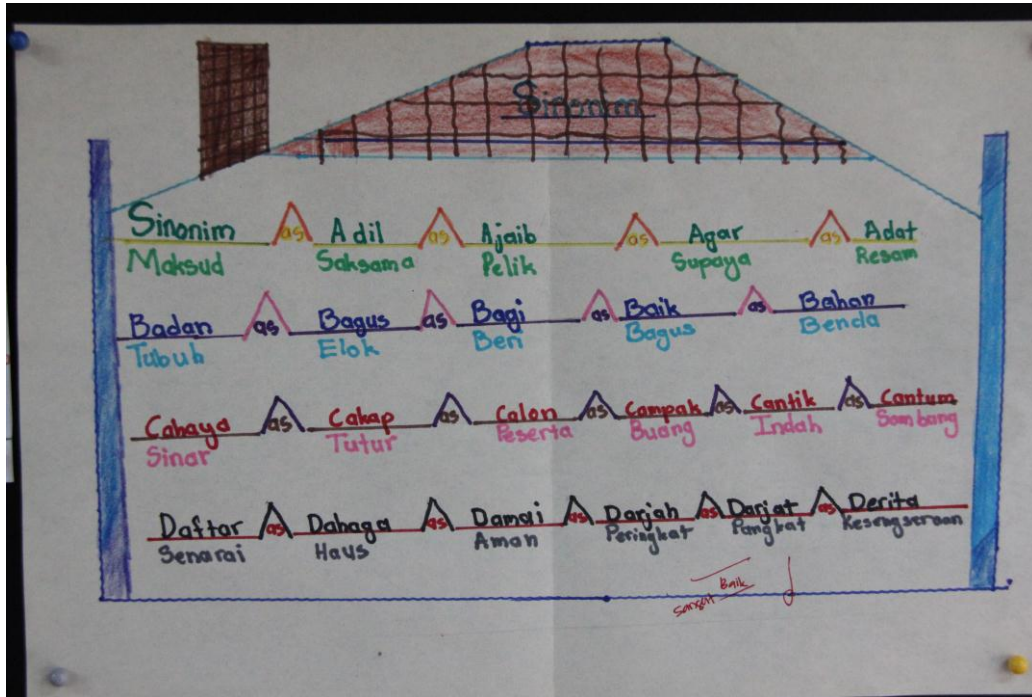 Sinonim
Sinonim as Adil as Ajaib as Agar as Adat
Maksud Saksama Pelik Supaya Resam
Badan as Bagus as Bagi as Baik as Bahan
Tubuh Elok Beri Bagus Benda
Cahaya as Cakap as Calon as Campak as Cantik as Cantum
Sinar Tutur Peserta Buang Indah Sambung
Daftar as Dahaga as Damai as Darjah as Darjat as Derita
Senarai Haus Aman Peringkat Pangkat Kesengseraan
Baik